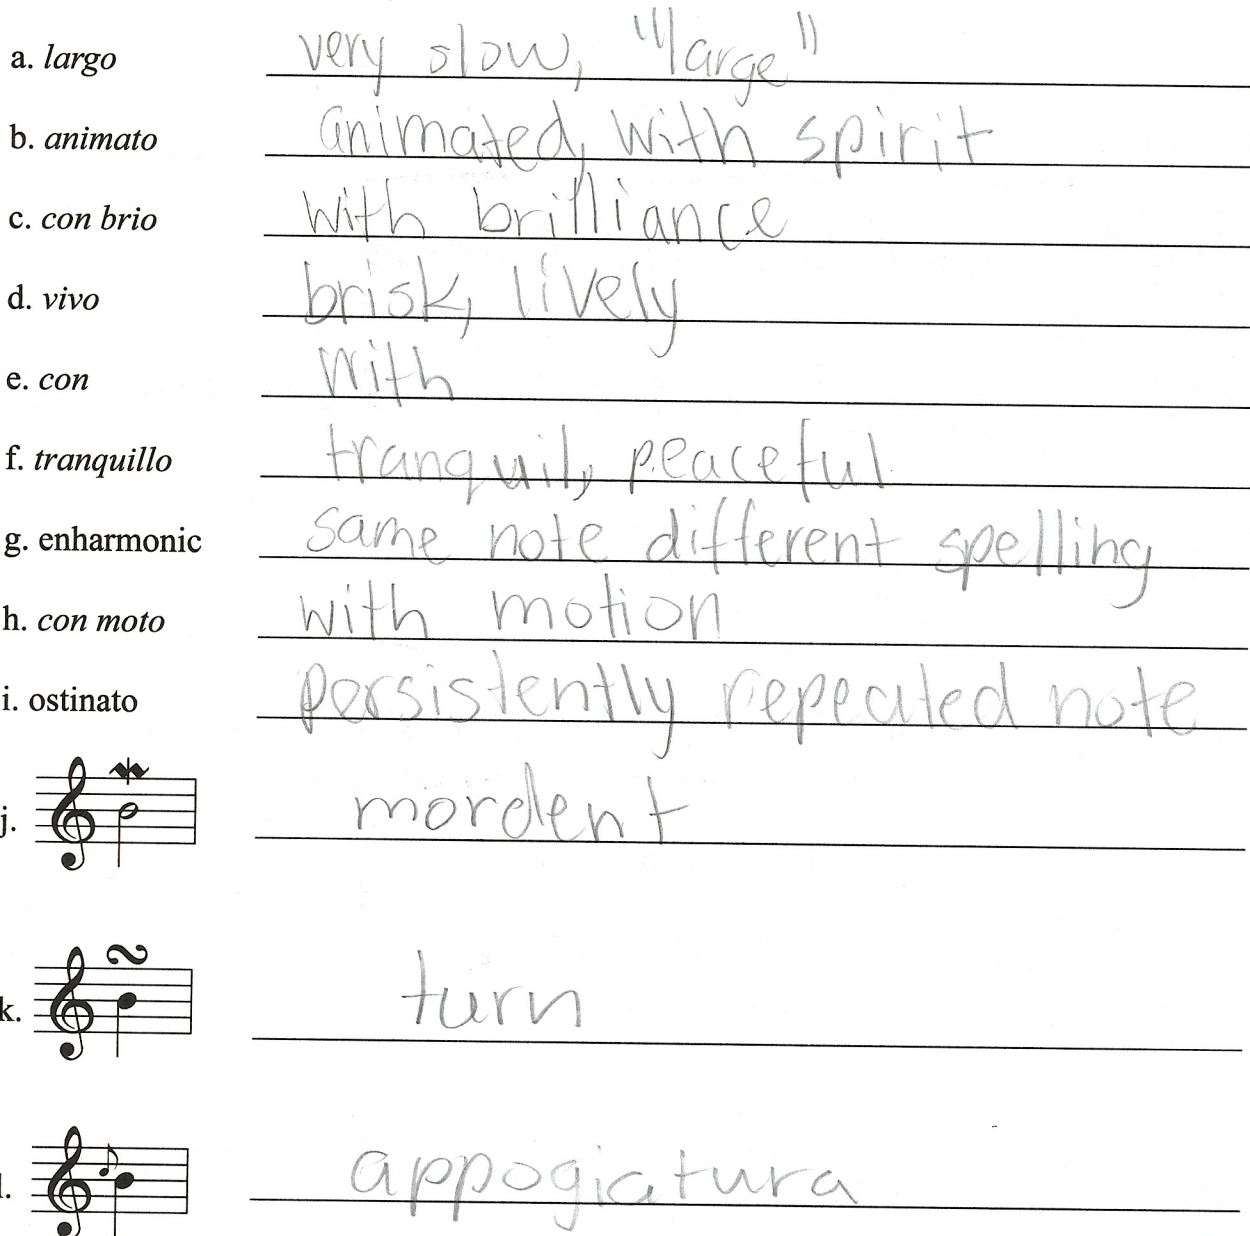 a. largo very slow, "large"
b. animato animated, with spirit
c. con brio with brilliance
d. vivo brisk, lively
e. con with
f. tranquillo tranquil, peaceful
g. enharmonic same note different spelling
h. con moto with motion
i. ostinato persistently repeated note
j. mordent
k. turn
l. appogiatura